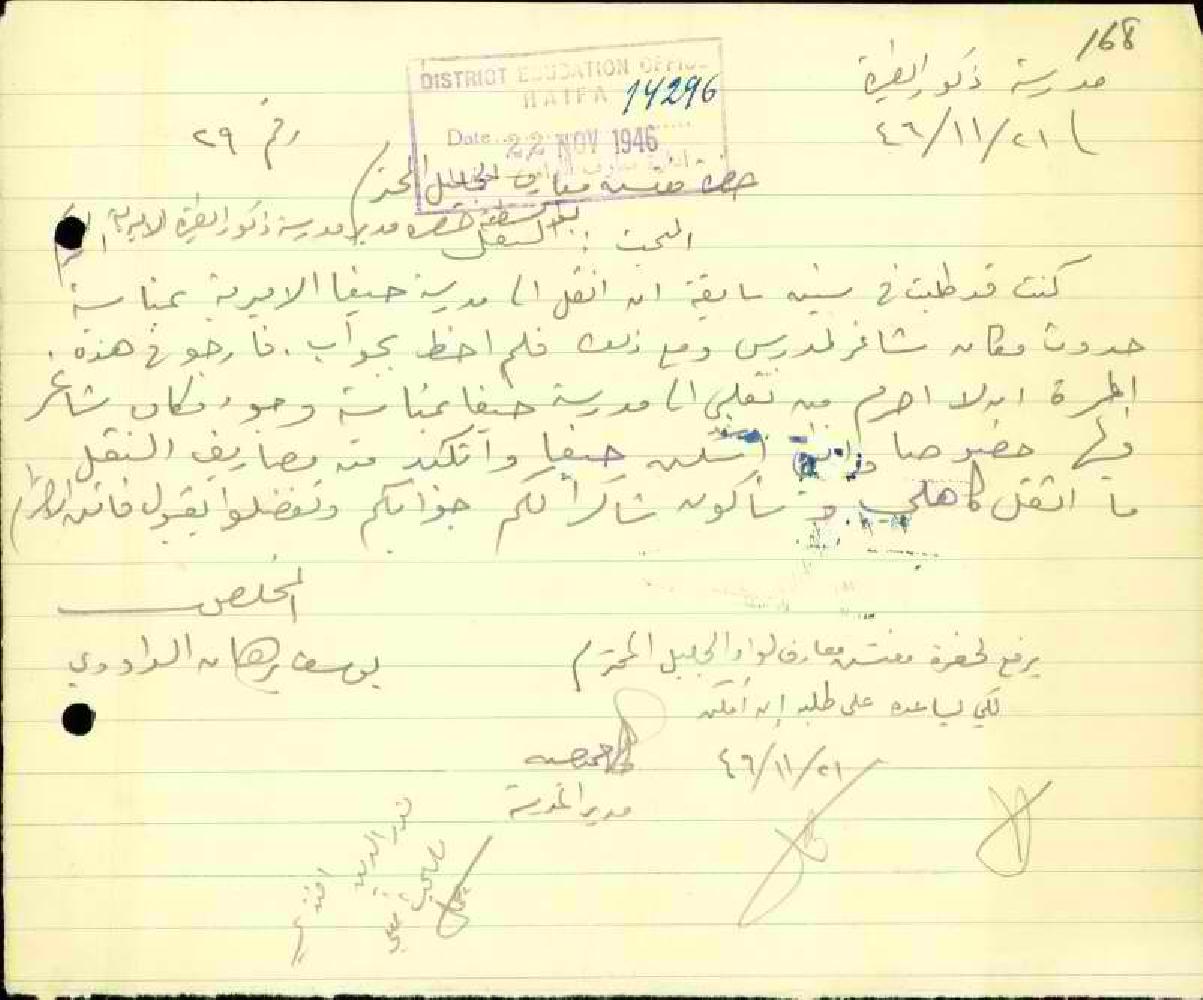 168
مدرسة ذكور الطيرة
٤٦/١١/٢١
DISTRICT EDUCATION OFFICE
HAIFA 14296
Date 22 NOV 1946
رقم ٢٩
حضرة مفتش معارف الجليل المحترم
بواسطة حضرة مدير مدرسة ذكور الطيرة الاميرية
البحث : النقل
كنت قد طلبت في سنين سابقة ان انقل الى مدرسة حيفا الاميرية بمناسبة
حدوث مكان شاغر لمدرس ومع ذلك فلم احظ بجواب. فارجو في هذه
المرة ان لا احرم من نقلي الى مدرسة حيفا بمناسبة وجود مكان شاغر
فيها خصوصا وانني اسكن حيفا واتكبد من مصاريف النقل
ما اثقل كاهلي وسأكون شاكرا لكم جوابكم وتفضلوا بقبول فائق الاحترام
المخلص
يوسف برهان الداودي
يرفع لحضرة مفتش معارف لواء الجليل المحترم
لكي يساعده على طلبه إن أمكن
٤٦/١١/٢١
مدير المدرسة
نور الدين افندي